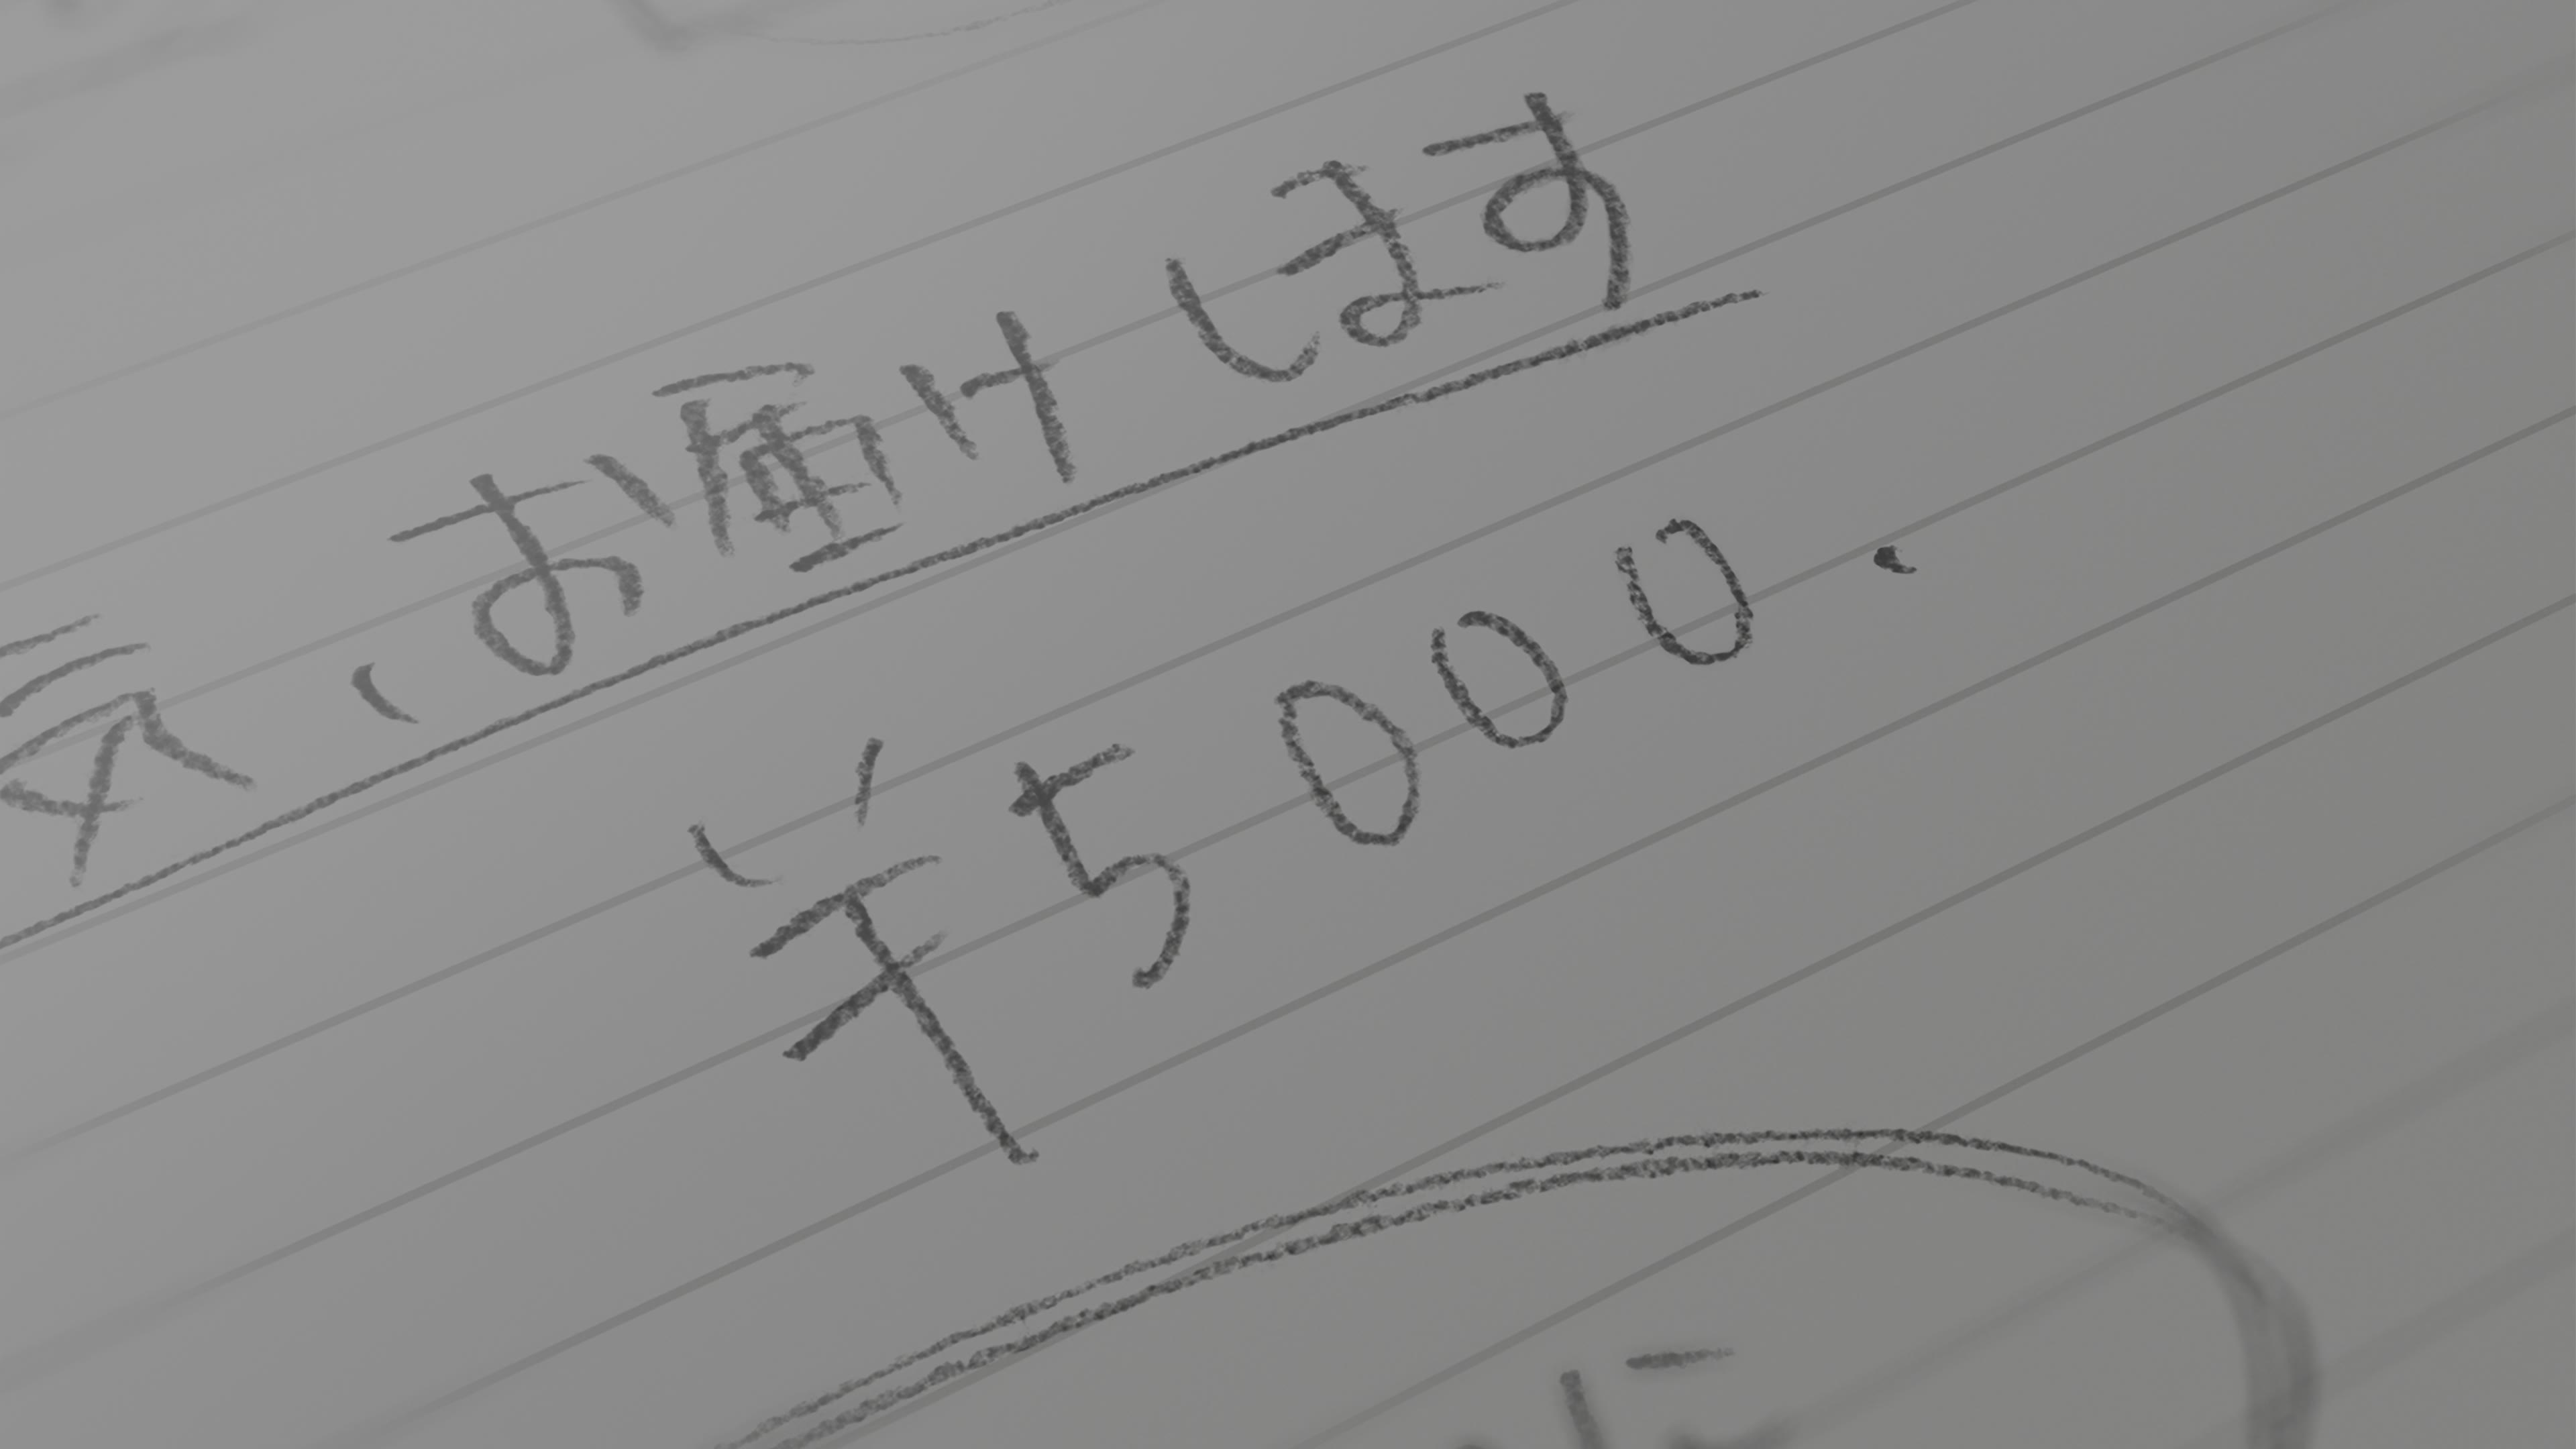 気、お届けします
¥5000.